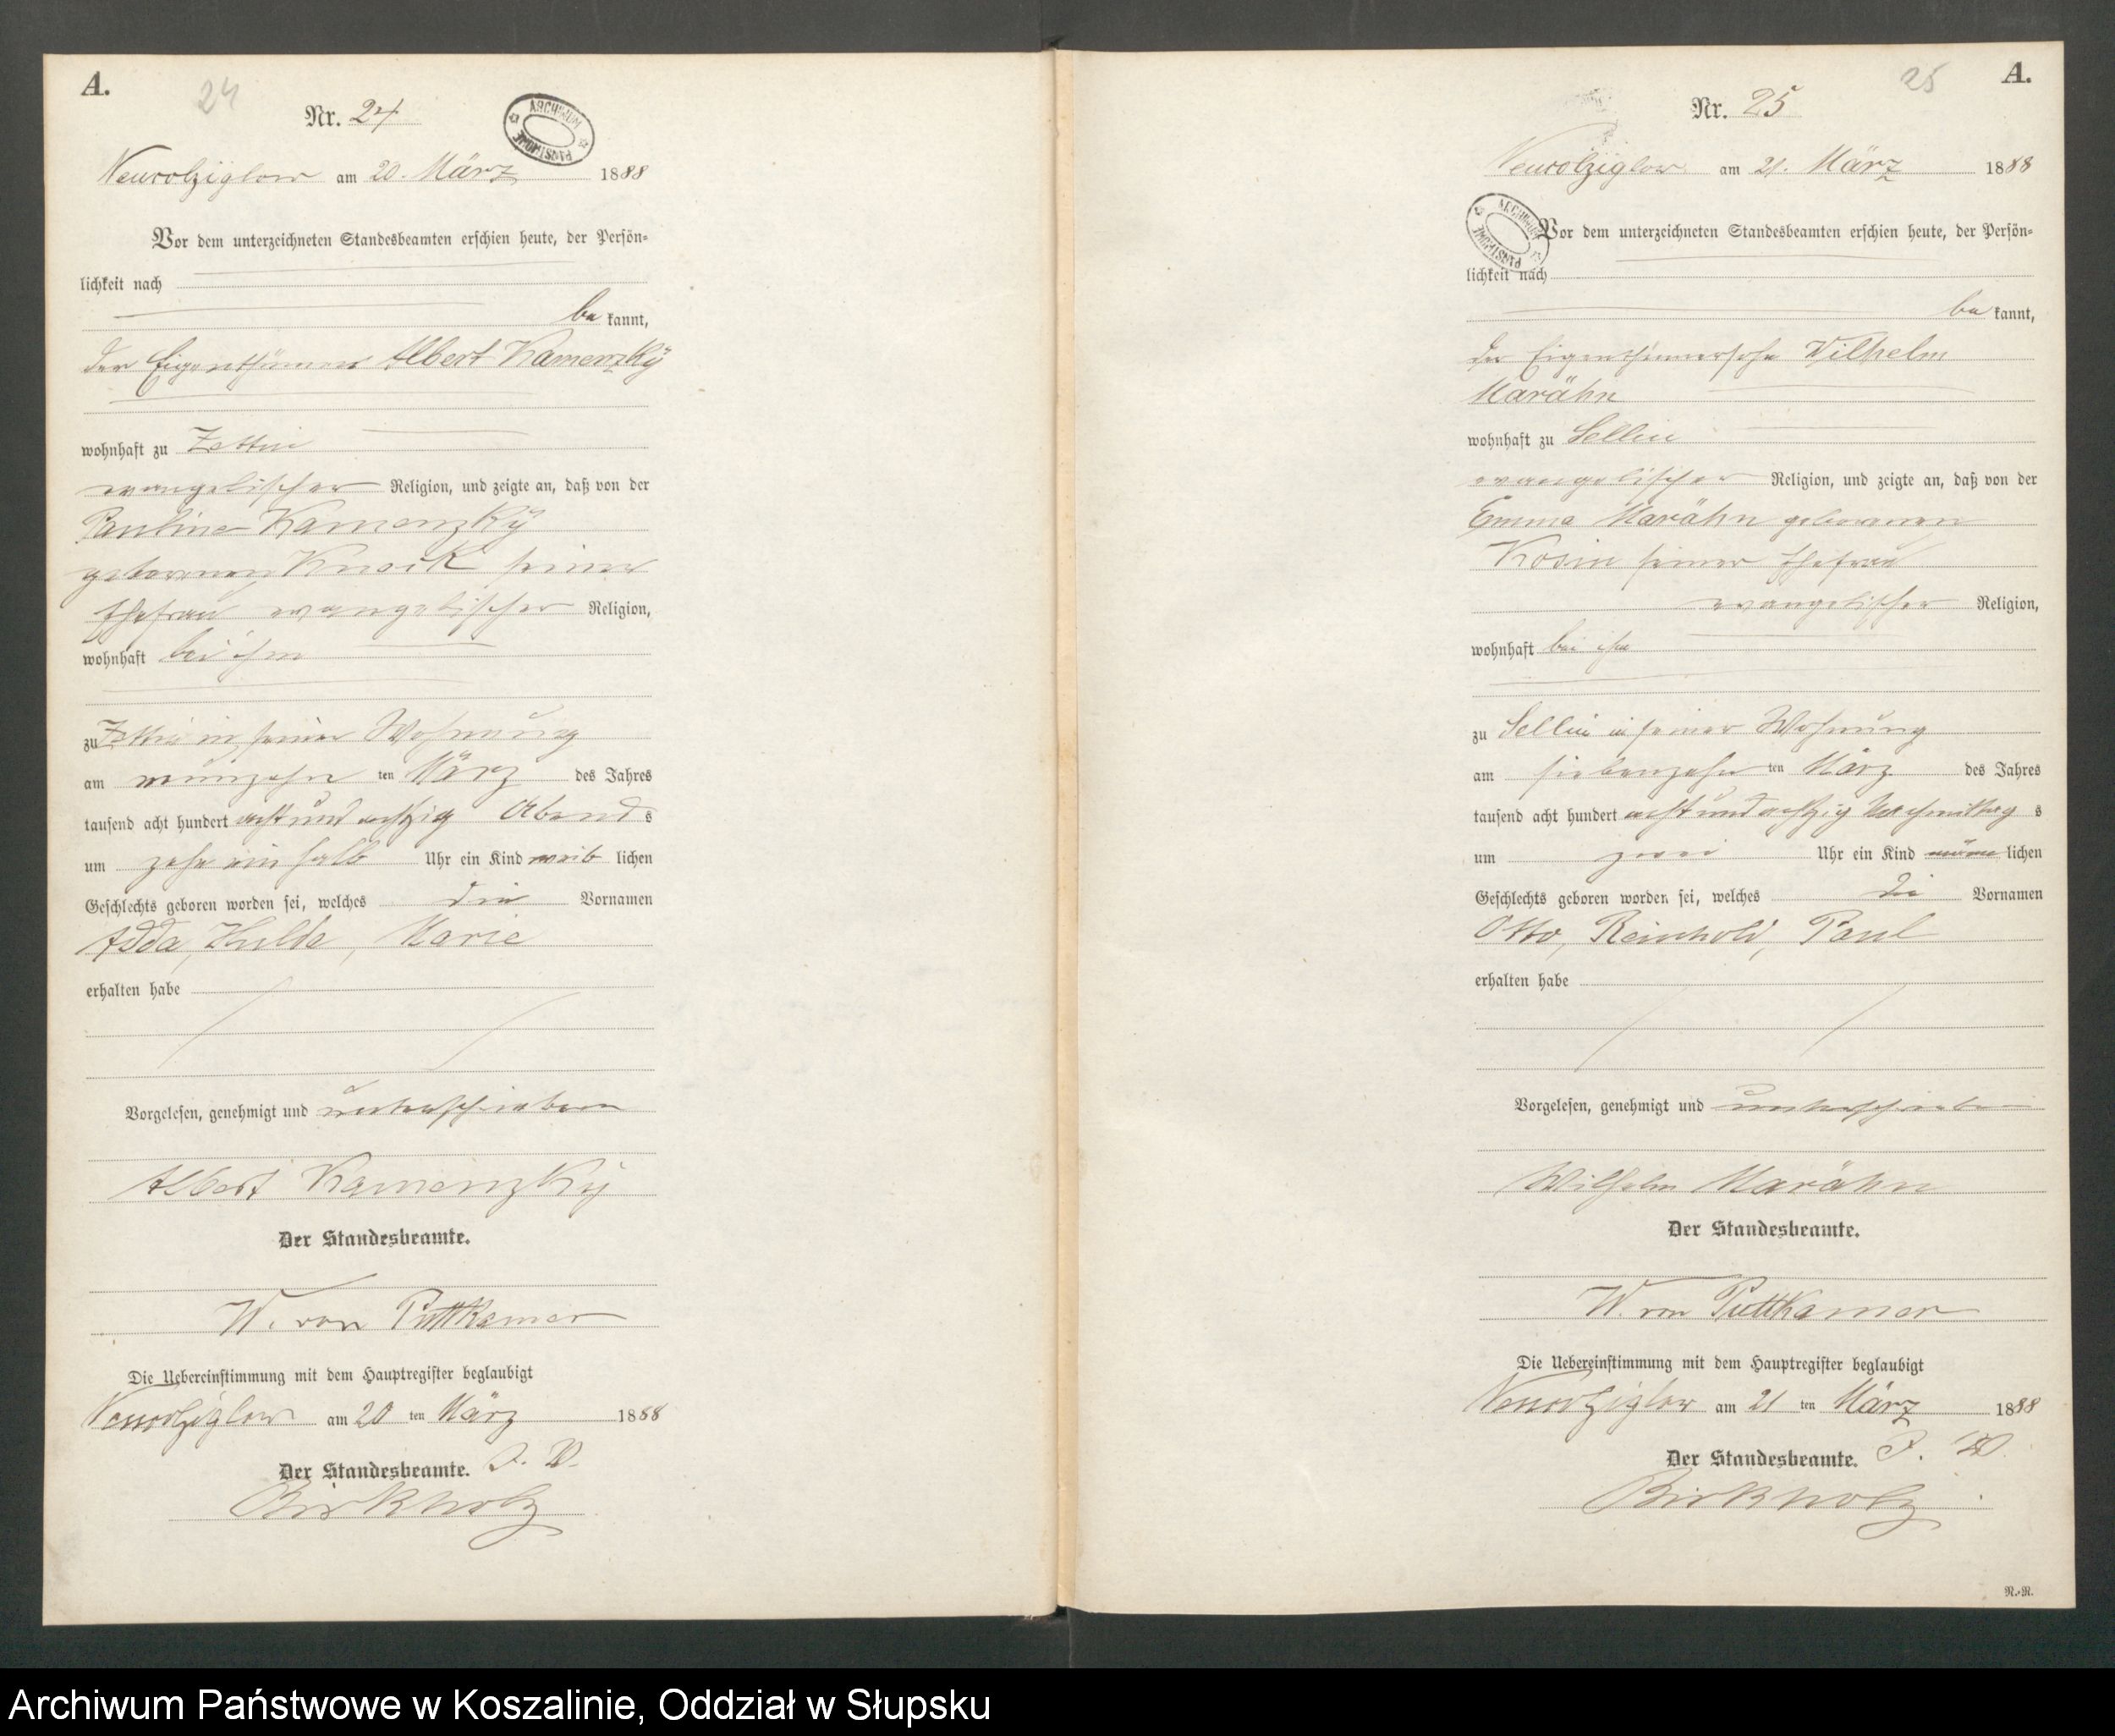 A.
24
Nr. 24
ARCHIWUM PAŃSTWOWE
Neuwolziglow am 20. März 1888
Vor dem unterzeichneten Standesbeamten erschien heute, der Persön-
lichkeit nach
be kannt,
der Eigenthümer Albert Kamenzky
wohnhaft zu Zettin
evangelischer Religion, und zeigte an, daß von der
Pauline Kamenzky
geborenen Knack seiner
Ehefrau evangelischer Religion,
wohnhaft bei ihm
zu Zettin in seiner Wohnung
am neunzehn ten März des Jahres
tausend acht hundert acht und achtzig Abend s
um zehn ein halb Uhr ein Kind weib lichen
Geschlechts geboren worden sei, welches die Vornamen
Adda, Hulda, Marie
erhalten habe
Vorgelesen, genehmigt und unterschrieben
Albert Kamenzky
Der Standesbeamte.
W. von Puttkamer
Die Uebereinstimmung mit dem Hauptregister beglaubigt
Neuwolziglow am 20 ten März 1888
Der Standesbeamte. I. V.
Birkholz
25
A.
Nr. 25
Neuwolziglow am 21. März 1888
ARCHIWUM PAŃSTWOWE
Vor dem unterzeichneten Standesbeamten erschien heute, der Persön-
lichkeit nach
be kannt,
der Eigenthümersohn Wilhelm
Marähn
wohnhaft zu Sellin
evangelischer Religion, und zeigte an, daß von der
Emma Marähn geborenen
Kosin seiner Ehefrau
evangelischer Religion,
wohnhaft bei ihm
zu Sellin in seiner Wohnung
am siebenzehn ten März des Jahres
tausend acht hundert acht und achtzig Nachmittag s
um zwei Uhr ein Kind männ lichen
Geschlechts geboren worden sei, welches die Vornamen
Otto, Reinhold, Paul
erhalten habe
Vorgelesen, genehmigt und unterschrieben
Wilhelm Marähn
Der Standesbeamte.
W. von Puttkamer
Die Uebereinstimmung mit dem Hauptregister beglaubigt
Neuwolziglow am 21 ten März 1888
Der Standesbeamte. I. V.
Birkholz
N.-N.
Archiwum Państwowe w Koszalinie, Oddział w Słupsku